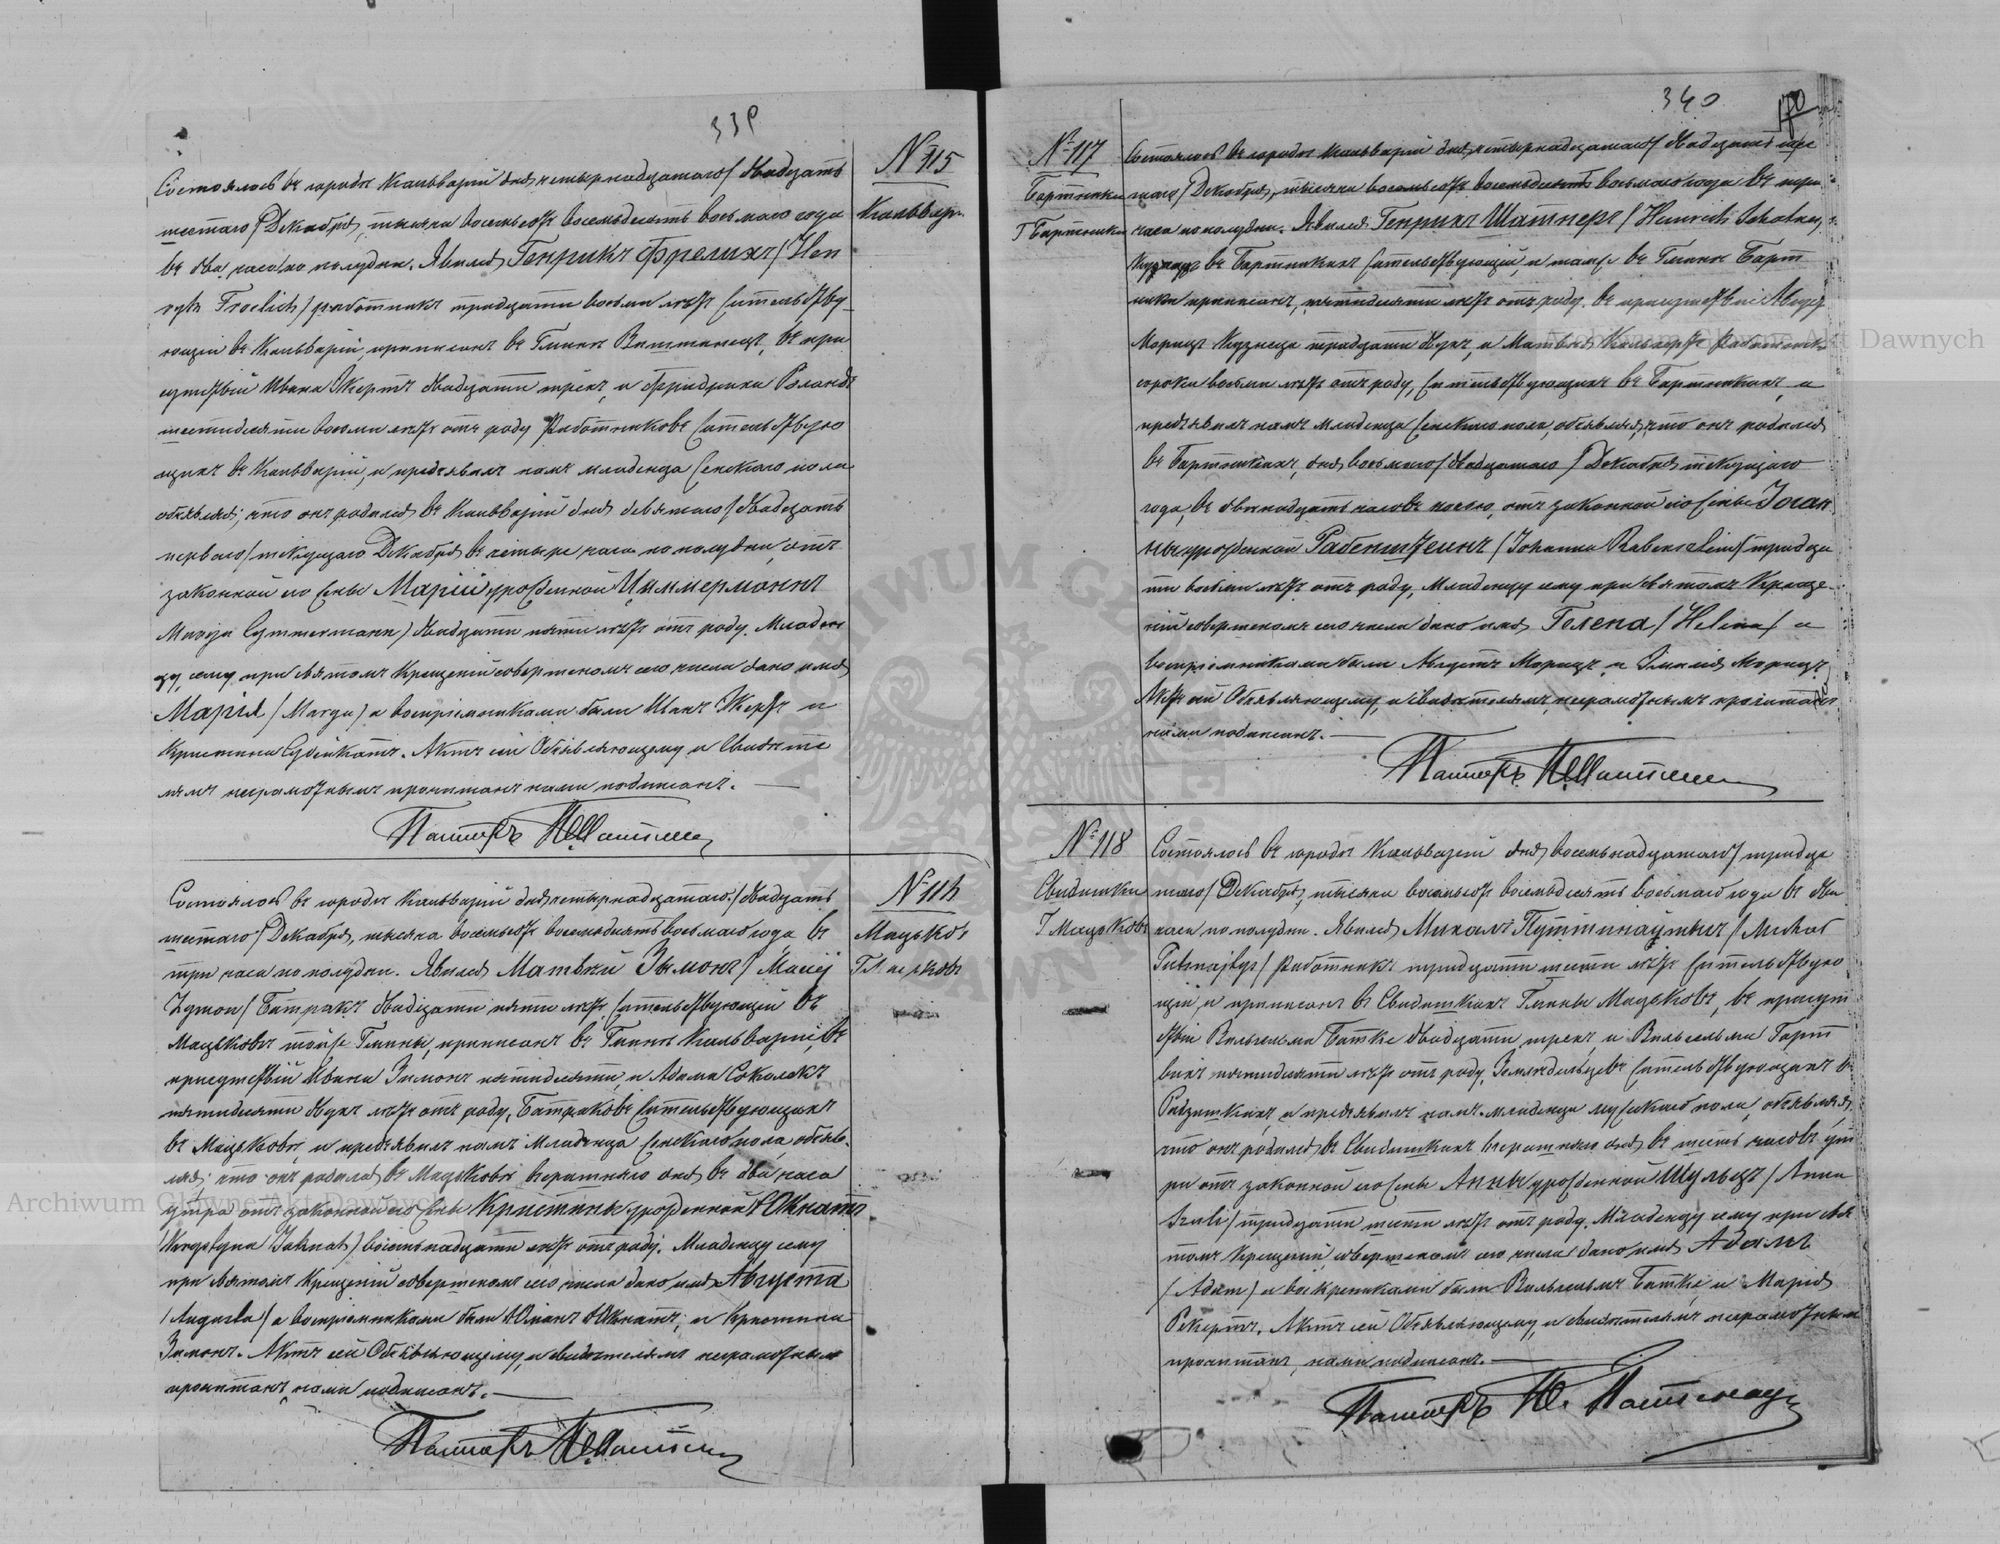 339
№ 115
Кальвар.
Состоялось въ городѣ Кальваріи дня четырнадцатаго/двадцать
шестаго/Декабря, тысяча восемьсотъ восемьдесятъ восьмаго года
въ два часа по полудни. Явился Генрихъ Фрелихъ/Hen
rych Froelich/работникъ тридцати восьми лѣтъ жительству-
ющій въ Кальваріи, приписанъ въ Гминѣ въ при
сутствіи Ивана Экертъ двадцати трехъ, и Фридриха Роландъ
шестидесяти восьми лѣтъ отъ роду Работниковъ жительствую
щихъ въ Кальваріи, и предъявилъ намъ младенца женскаго пола
объявляя; что онъ родился въ Кальваріи дня девятаго/двадцать
перваго/текущаго Декабря въ четыре часа по полудни, отъ
законной его жены Маріи урожденной Циммерманнъ
Maryja Cymmermann) двадцати пяти лѣтъ отъ роду. Младен
цу сему при святомъ Крещеніи совершеномъ его числа дано имя
Марія/Marya) а воспріемниками были Иванъ Экертъ и
Кристина . Актъ сей Объявляющему и Свидѣте
лямъ неграмотнымъ прочитанъ нами подписанъ.
Пасторъ
№ 116
Мацьковъ
Состоялось въ городѣ Кальваріи дня четырнадцатаго/двадцать
шестаго/Декабря, тысяча восемьсотъ восемьдесятъ восьмаго года въ
три часа по полудни. Явился Матвѣй Зымонъ/Maciej
Zymon/Батракъ двадцати пяти лѣтъ, жительствующій въ
Мацьковѣ тойже Гмины, приписанъ въ Гминѣ Кальваріи, въ
присутствіи Ивана Зимонъ пятидесяти, и Адама Соколахъ
пятидесяти двухъ лѣтъ отъ роду, Батраковъ жительствующихъ
въ Мацьковѣ, и предъявилъ намъ младенца женскаго пола, объяв-
ляя; что онъ родился въ Мацьковѣ вчерашняго дня въ два часа
утра отъ законной его жены Кристины урожденной Юкнатъ
/Krystyna Juknat) восемьнадцати лѣтъ отъ роду. Младенцу сему
при святомъ Крещеніи совершеномъ его числа дано имя Августа
/Augusta/ а воспріемниками были Юкнатъ, и Кристина
Зимонъ. Актъ сей Объявляющему, и свидѣтелямъ неграмотнымъ
прочитанъ, нами подписанъ.
Пасторъ
340
170
№ 117
Бартники
Г Бартники
Состоялось въ городѣ Кальваріи дня четырнадцатаго/двадцать шес
таго/Декабря, тысяча восемьсотъ восемьдесятъ восьмаго года въ три
часа по полудни. Явился Генрихъ Шатнеръ/Heinrich Schatner,
Кузнецъ въ Бартникахъ жительствующій, и тамже въ Гминѣ Барт
ники приписанъ, пятидесяти лѣтъ отъ роду въ присутствіи Августъ
Морицъ Кузнеца тридцати двухъ, и Матвѣя Работника
сорока восьми лѣтъ отъ роду, жительствующихъ въ Бартникахъ, и
предъявилъ намъ младенца женскаго пола, объявляя, что онъ родился
въ Бартникахъ, дня восьмаго/двадцатаго/Декабря текущаго
года, въ двенадцать часовъ ночью, отъ законной его жены Іоган
ны урожденной Рабенштеинъ/Johanna Rabenstein/тридца
ти восьми лѣтъ отъ роду, Младенцу сему при святомъ Креще-
ніи совершеномъ его числа дано имя Гелена/Helena/ а
воспріемниками были Августъ Морицъ и Эмилія Морицъ.
Актъ сей Объявляющему, и свидѣтелямъ неграмотнымъ прочитанъ
нами подписанъ.
Пасторъ
№ 118
Свидишки
Г Мацьковъ
Состоялось въ городѣ Кальваріи дня восемьнадцатаго/тридца
таго/Декабря, тысяча восемьсотъ восемьдесятъ восьмаго года въ два
часа по полудни. Явился Михалъ /Michał
/Работникъ тридцати шести лѣтъ жительствую
щій, и приписанъ въ Свидишкахъ Гмины Мацьковъ, въ присут
ствіи Вильгельма Батке двадцати трехъ, и Вильгельма Гарт
вихъ пятидесяти лѣтъ отъ роду, Земледѣльцевъ жительствующихъ въ
и предъявилъ намъ младенца мужскаго пола, объявляя,
что онъ родился въ Свидишкахъ вчерашняго дня въ шесть часовъ ут
ра отъ законной его жены Анны урожденной Шульцъ/Anna
Szulc/тридцати шести лѣтъ отъ роду. Младенцу сему при свя
томъ Крещеніи совершеномъ его числа дано имя Адамъ
/Adam/ а воспріемниками были Вильгельмъ Батке, и Марія
Рекертъ. Актъ сей Объявляющему, и свидѣтелямъ неграмотнымъ
прочитанъ, нами подписанъ.
Пасторъ
Archiwum Główne Akt Dawnych
Archiwum Główne Akt Dawnych